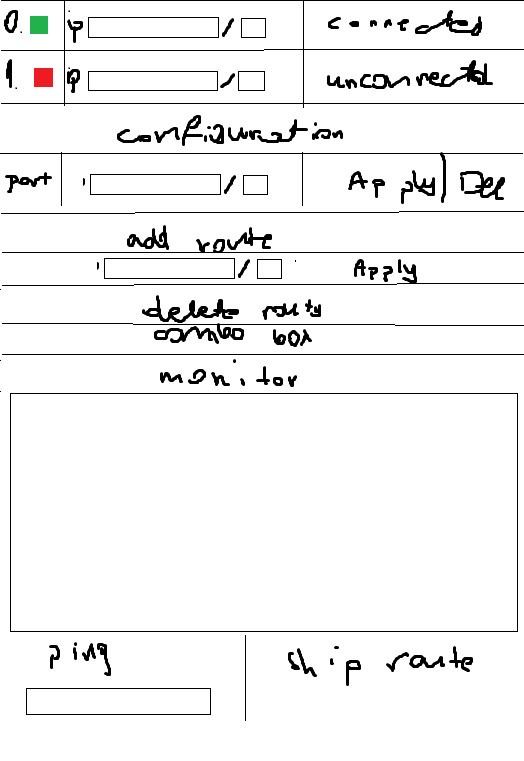 0. ip / connected
1. ip / unconnected
configuration
port / Apply | Del
add route
/ Apply
delete route
combo box
monitor
ping ship route